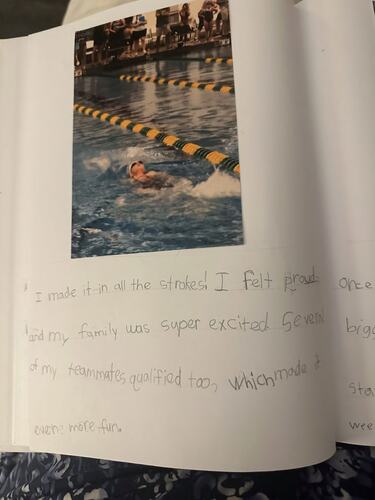 I made it in all the strokes! I felt proud
and my family was super excited Several
of my teammates qualified too, which made it
even more fun.
once
bigg
sta
wee